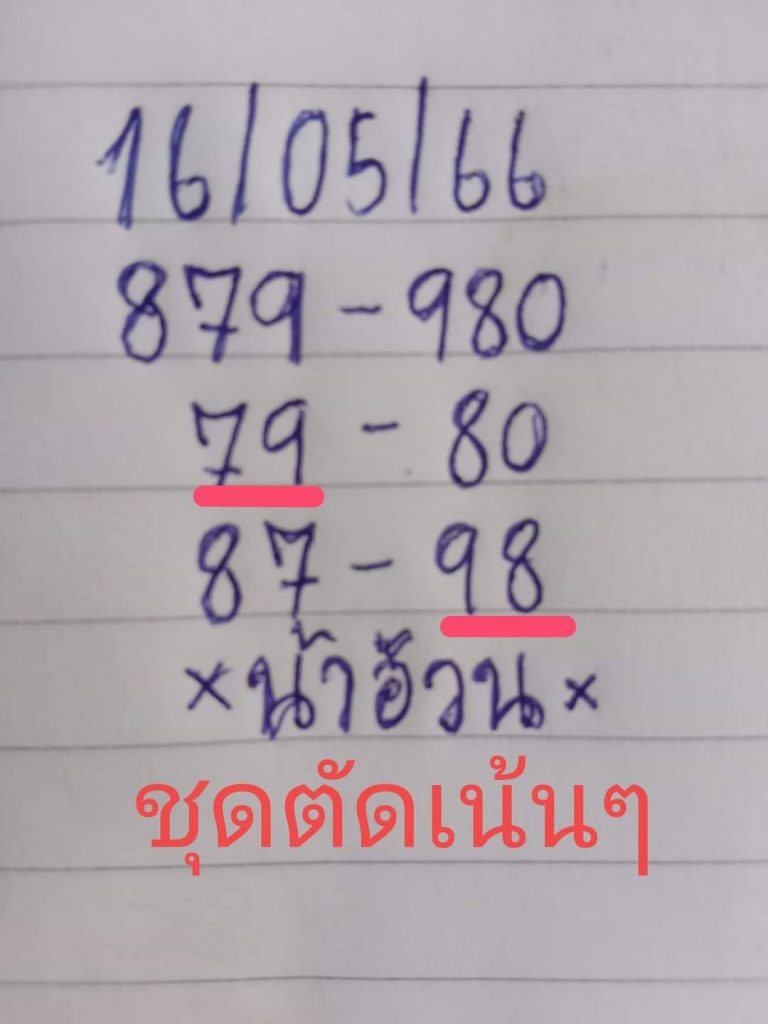 16/05/66
879 - 980
79 - 80
87 - 98
× น้าอ้วน ×
ชุดตัดเน้นๆ